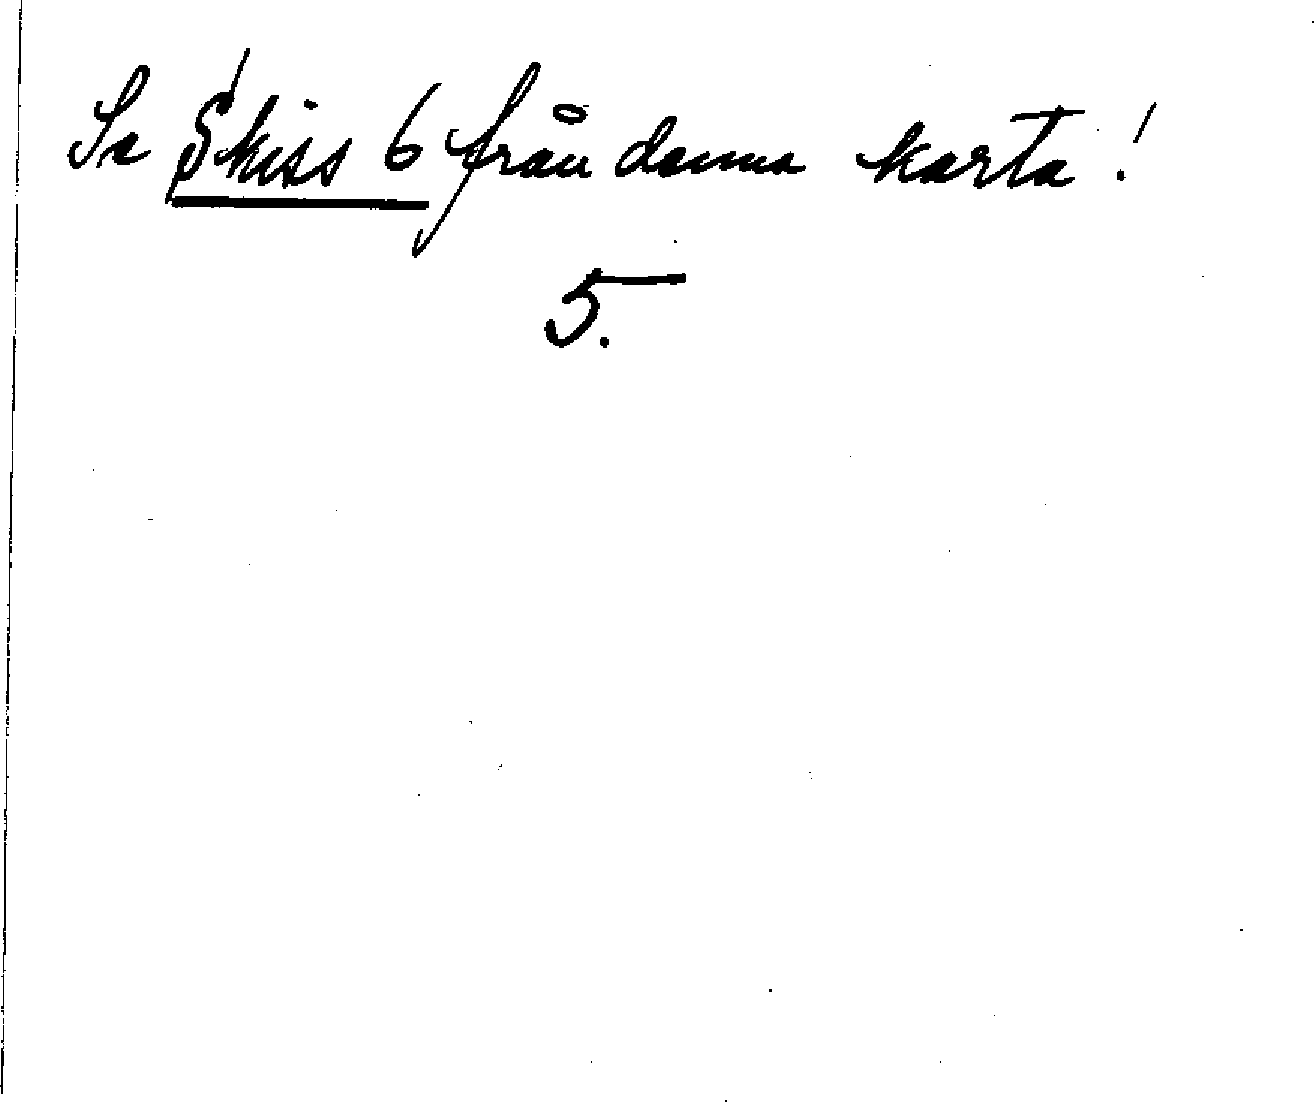 Se Skiss 6 från denna karta!
5.